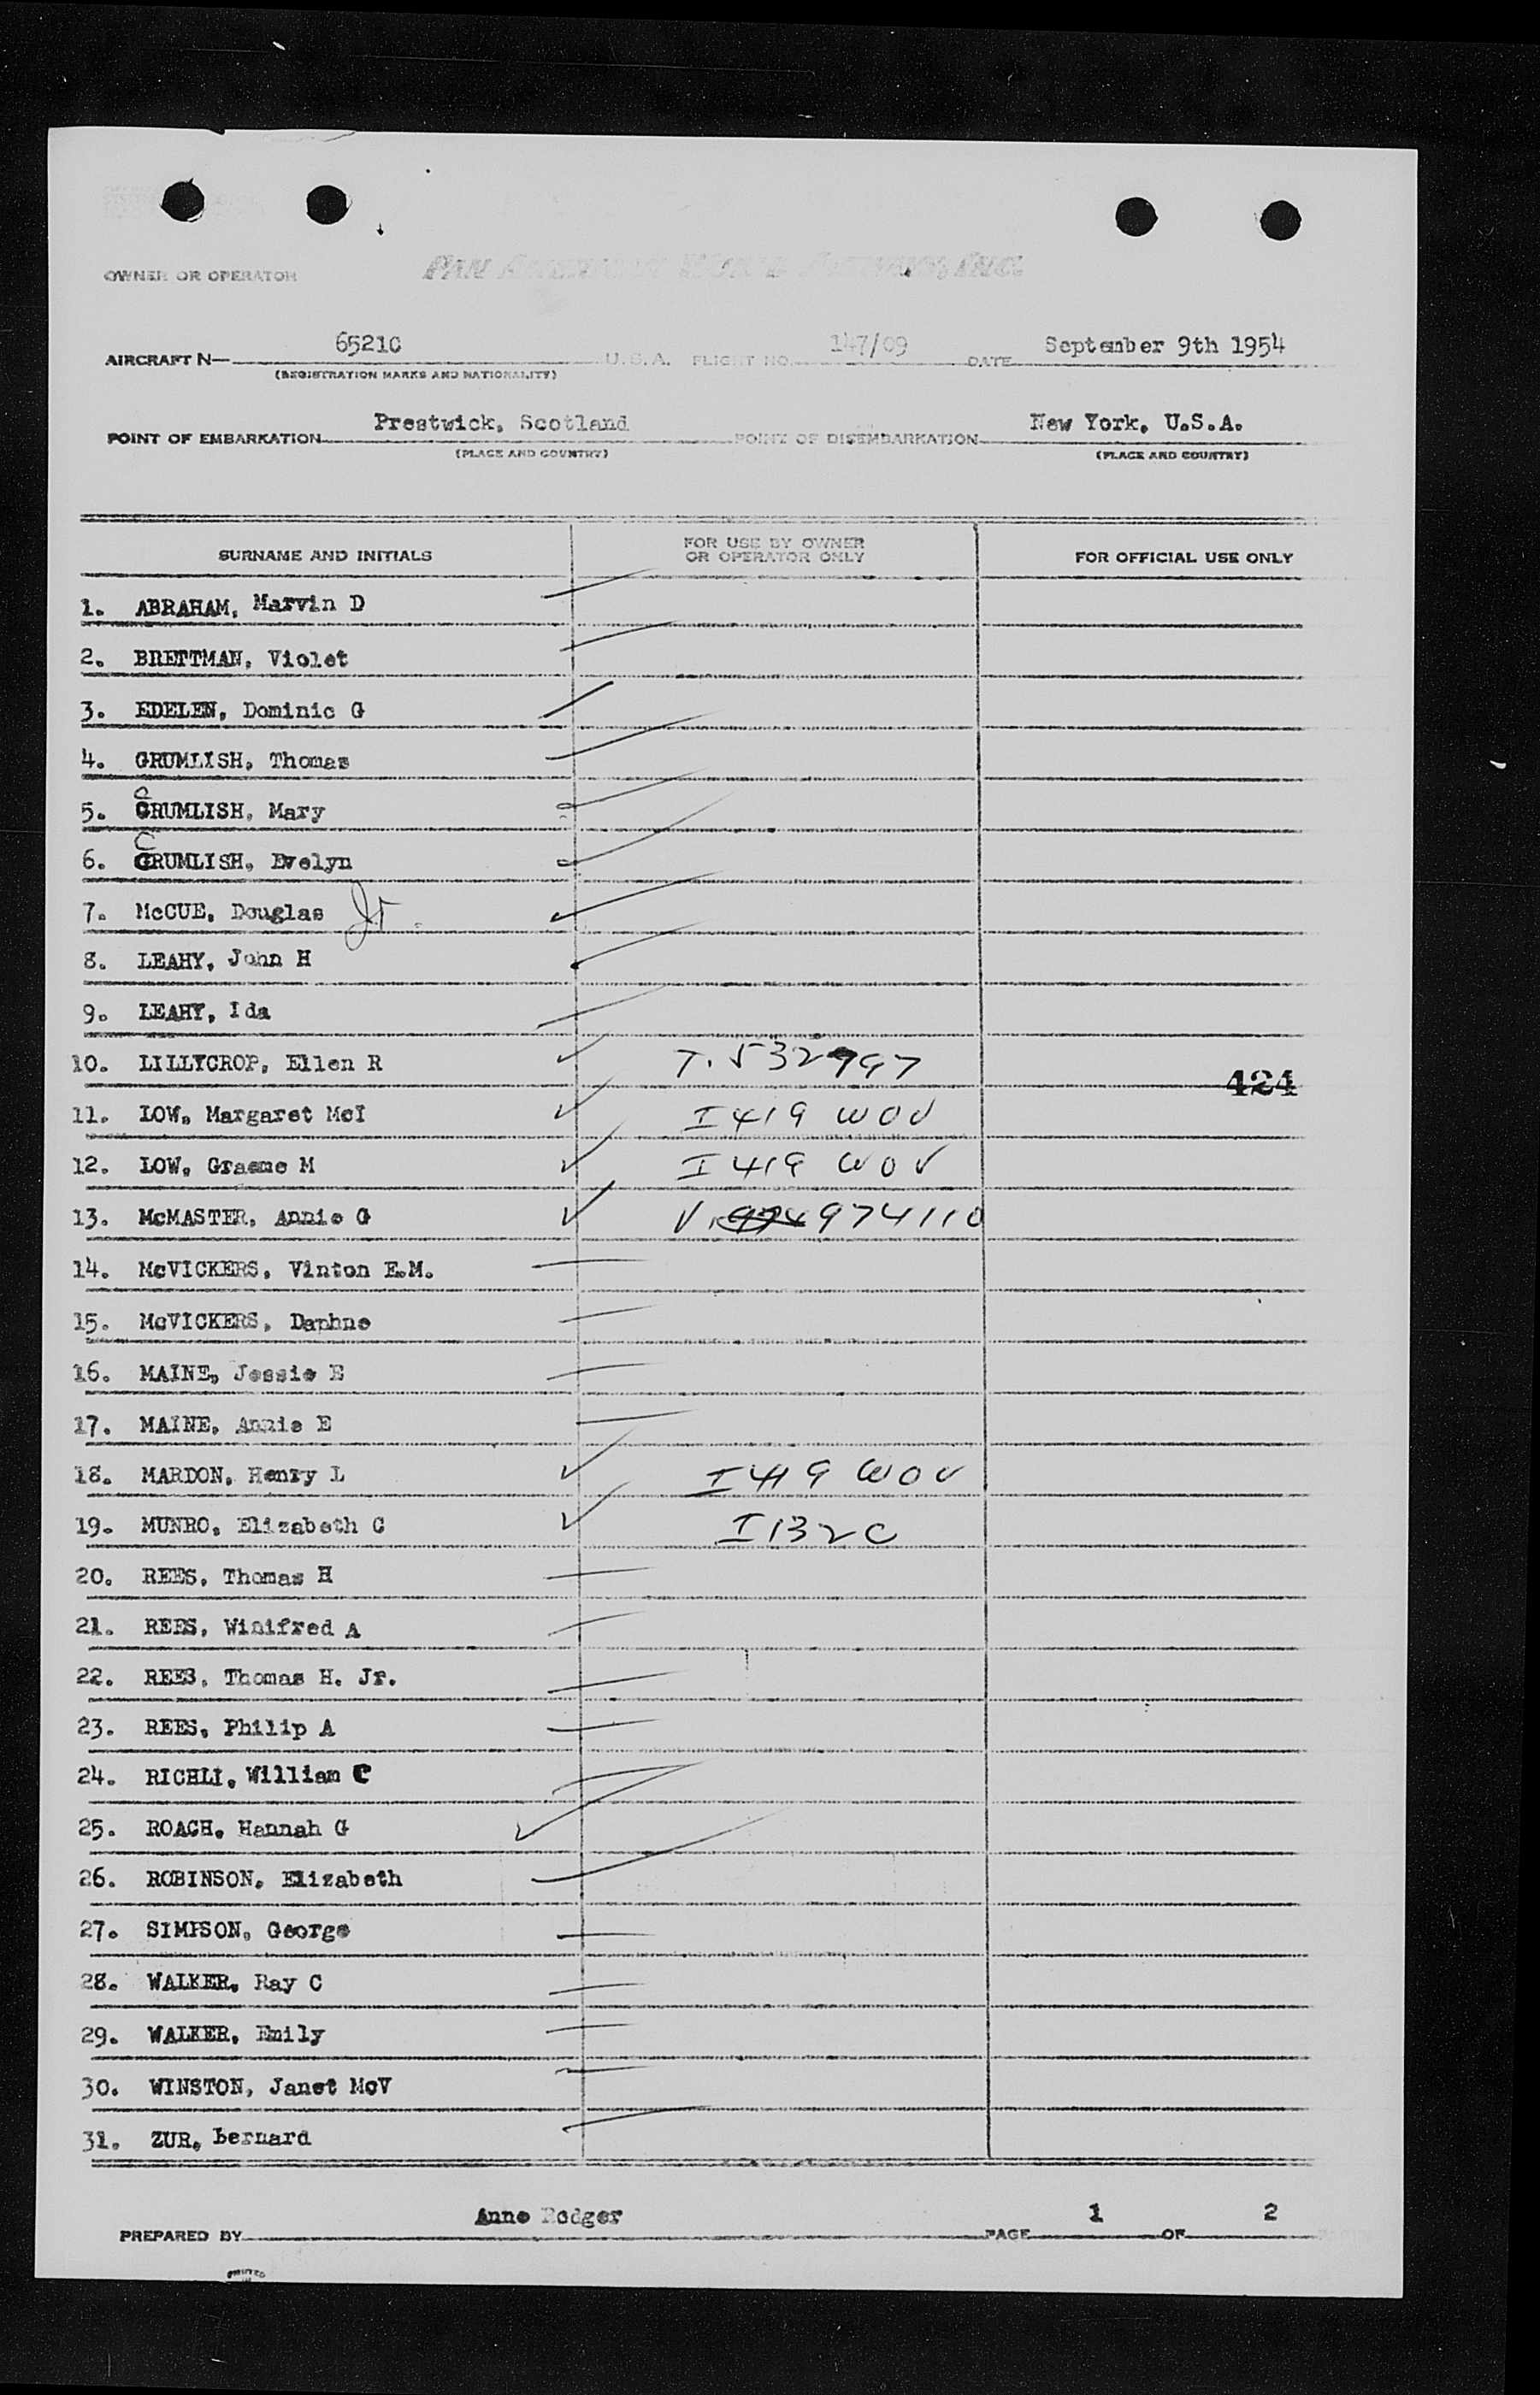 OWNER OR OPERATOR PAN AMERICAN WORLD AIRWAYS, INC.
AIRCRAFT N— 6521C U.S.A. FLIGHT NO. 147/09 DATE September 9th 1954
(REGISTRATION MARKS AND NATIONALITY)
POINT OF EMBARKATION Prestwick, Scotland POINT OF DISEMBARKATION New York, U.S.A.
(PLACE AND COUNTRY) (PLACE AND COUNTRY)
SURNAME AND INITIALS FOR USE BY OWNER OR OPERATOR ONLY FOR OFFICIAL USE ONLY
1. ABRAHAM, Marvin D
2. BRETTMAN, Violet
3. EDELEN, Dominic G
4. GRUMLISH, Thomas
C
5. GRUMLISH, Mary
C
6. GRUMLISH, Evelyn
7. McCUE, Douglas Jr.
8. LEAHY, John H
9. LEAHY, Ida
10. LILLYCROP, Ellen R T. 532997
424
11. LOW, Margaret McI I 419 WOV
12. LOW, Graeme M I 419 WOV
13. McMASTER, Annie G V. 974110
14. McVICKERS, Vinton E.M.
15. McVICKERS, Daphne
16. MAINE, Jessie E
17. MAINE, Annie E
18. MARDON, Henry L I 419 WOV
19. MUNRO, Elizabeth C I 132 C
20. REES, Thomas H
21. REES, Winifred A
22. REES, Thomas H. Jr.
23. REES, Philip A
24. RICHLI, William C
25. ROACH, Hannah G
26. ROBINSON, Elizabeth
27. SIMPSON, George
28. WALKER, Ray C
29. WALKER, Emily
30. WINSTON, Janet McV
31. ZUR, Bernard
PREPARED BY Anne Rodger PAGE 1 OF 2
PRINTED